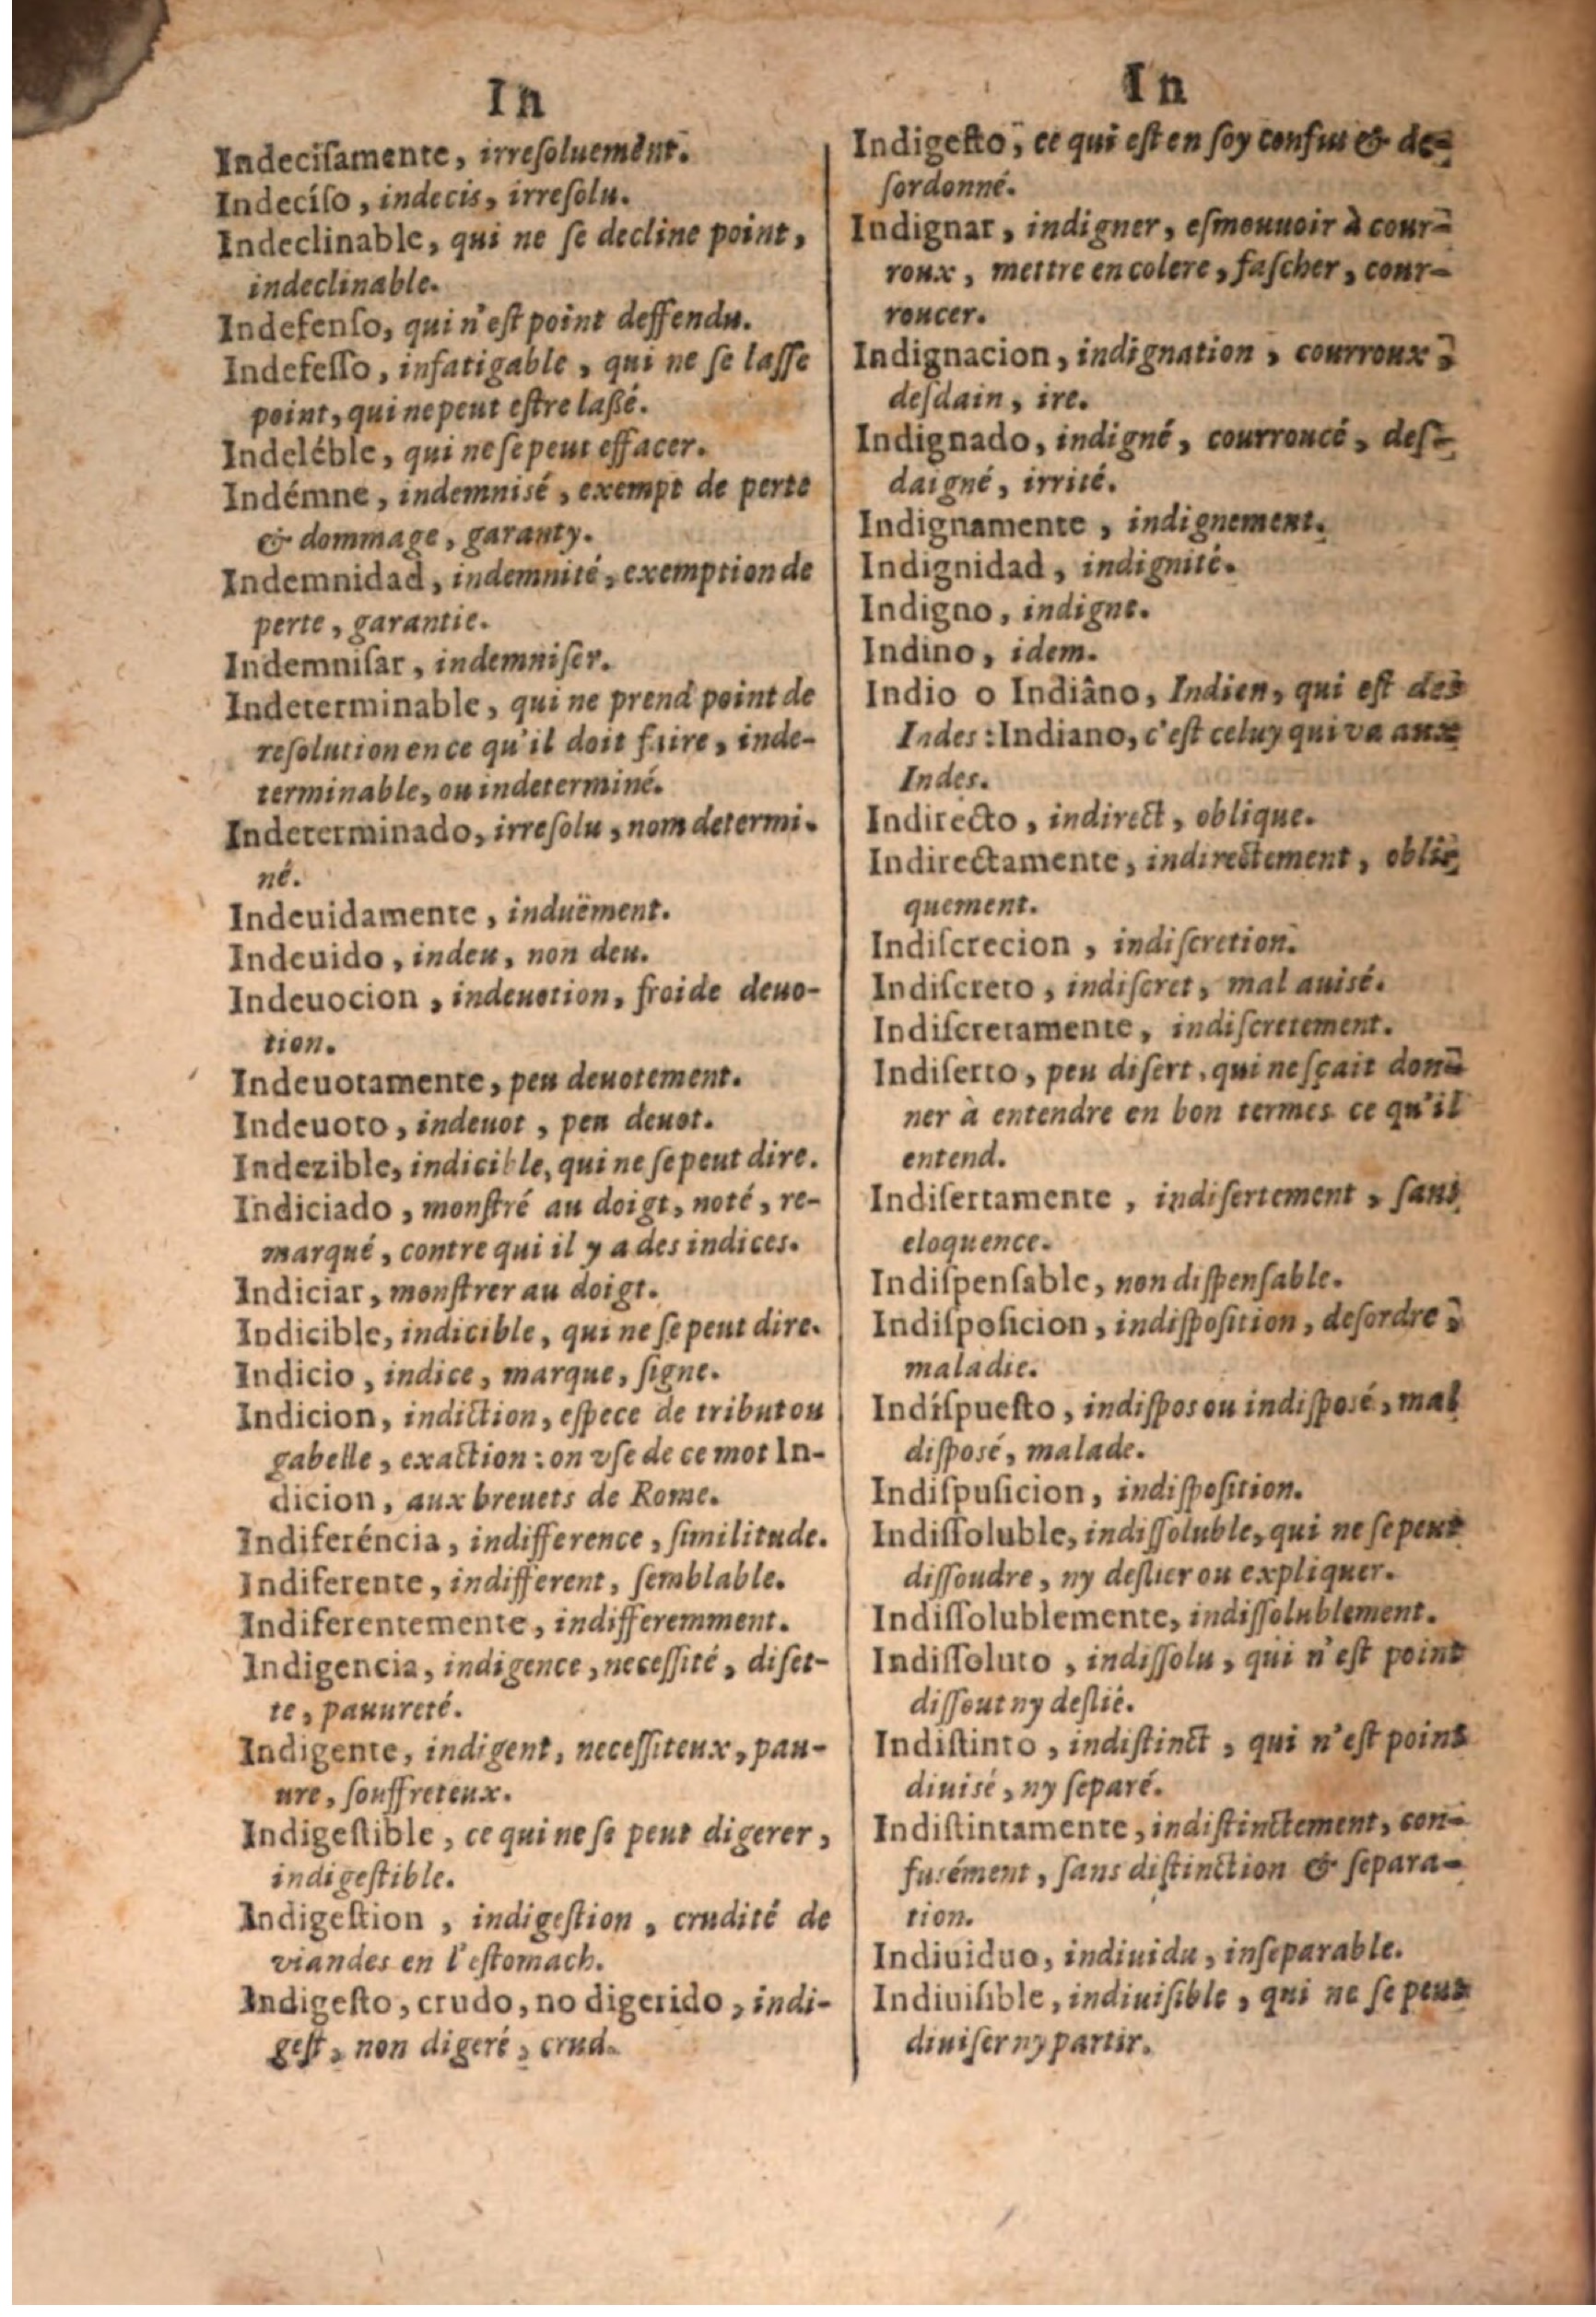 In
Indecisamente, irresoluemẽnt.
Indeciso, indecis, irresolu.
Indeclinable, qui ne se decline point,
indeclinable.
Indefenso, qui n'est point deffendu.
Indefesso, infatigable, qui ne se lasse
point, qui ne peut estre laßé.
Indeléble, qui ne se peut effacer.
Indémne, indemnisé, exempt de perte
& dommage, garanty.
Indemnidad, indemnité, exemption de
perte, garantie.
Indemnisar, indemniser.
Indeterminable, qui ne prend point de
resolution en ce qu'il doit faire, inde-
terminable, ou indeterminé.
Indeterminado, irresolu, nom determi-
né.
Indeuidamente, induëment.
Indeuido, indeu, non deu.
Indeuocion, indeuotion, froide deuo-
tion.
Indeuotamente, peu deuotement.
Indeuoto, indeuot, peu deuot.
Indezible, indicible, qui ne se peut dire.
Indiciado, monstré au doigt, noté, re-
marqué, contre qui il y a des indices.
Indiciar, monstrer au doigt.
Indicible, indicible, qui ne se peut dire.
Indicio, indice, marque, signe.
Indicion, indiction, espece de tribut ou
gabelle, exaction: on vse de ce mot In-
dicion, aux breuets de Rome.
Indiferéncia, indifference, similitude.
Indiferente, indifferent, semblable.
Indiferentemente, indifferemment.
Indigencia, indigence, necessité, diset-
te, pauureté.
Indigente, indigent, necessiteux, pau-
ure, souffreteux.
Indigestible, ce qui ne se peut digerer,
indigestible.
Indigestion, indigestion, crudité de
viandes en l'estomach.
Indigesto, crudo, no digerido, indi-
gest, non digeré, crud.
In
Indigesto, ce qui est en soy confus & de-
sordonné.
Indignar, indigner, esmouuoir à cour-
roux, mettre en colere, fascher, cour-
roucer.
Indignacion, indignation, courroux,
desdain, ire.
Indignado, indigné, courroucé, des-
daigné, irrité.
Indignamente, indignement.
Indignidad, indignité.
Indigno, indigne.
Indino, idem.
Indio o Indiâno, Indien, qui est des
Indes: Indiano, c'est celuy qui va aux
Indes.
Indirecto, indirect, oblique.
Indirectamente, indirectement, obli-
quement.
Indiscrecion, indiscretion.
Indiscreto, indiscret, mal auisé.
Indiscretamente, indiscretement.
Indiserto, peu disert, qui ne sçait don-
ner à entendre en bon termes ce qu'il
entend.
Indisertamente, indisertement, sans
eloquence.
Indispensable, non dispensable.
Indisposicion, indisposition, desordre,
maladie.
Indispuesto, indispos ou indisposé, mal
disposé, malade.
Indispusicion, indisposition.
Indissoluble, indissoluble, qui ne se peut
dissoudre, ny deslier ou expliquer.
Indissolublemente, indissolublement.
Indissoluto, indissolu, qui n'est point
dissout ny deslié.
Indistinto, indistinct, qui n'est point
diuisé, ny separé.
Indistintamente, indistinctement, con-
fusément, sans distinction & separa-
tion.
Indiuiduo, indiuidu, inseparable.
Indiuisible, indiuisible, qui ne se peut
diuiser ny partir.